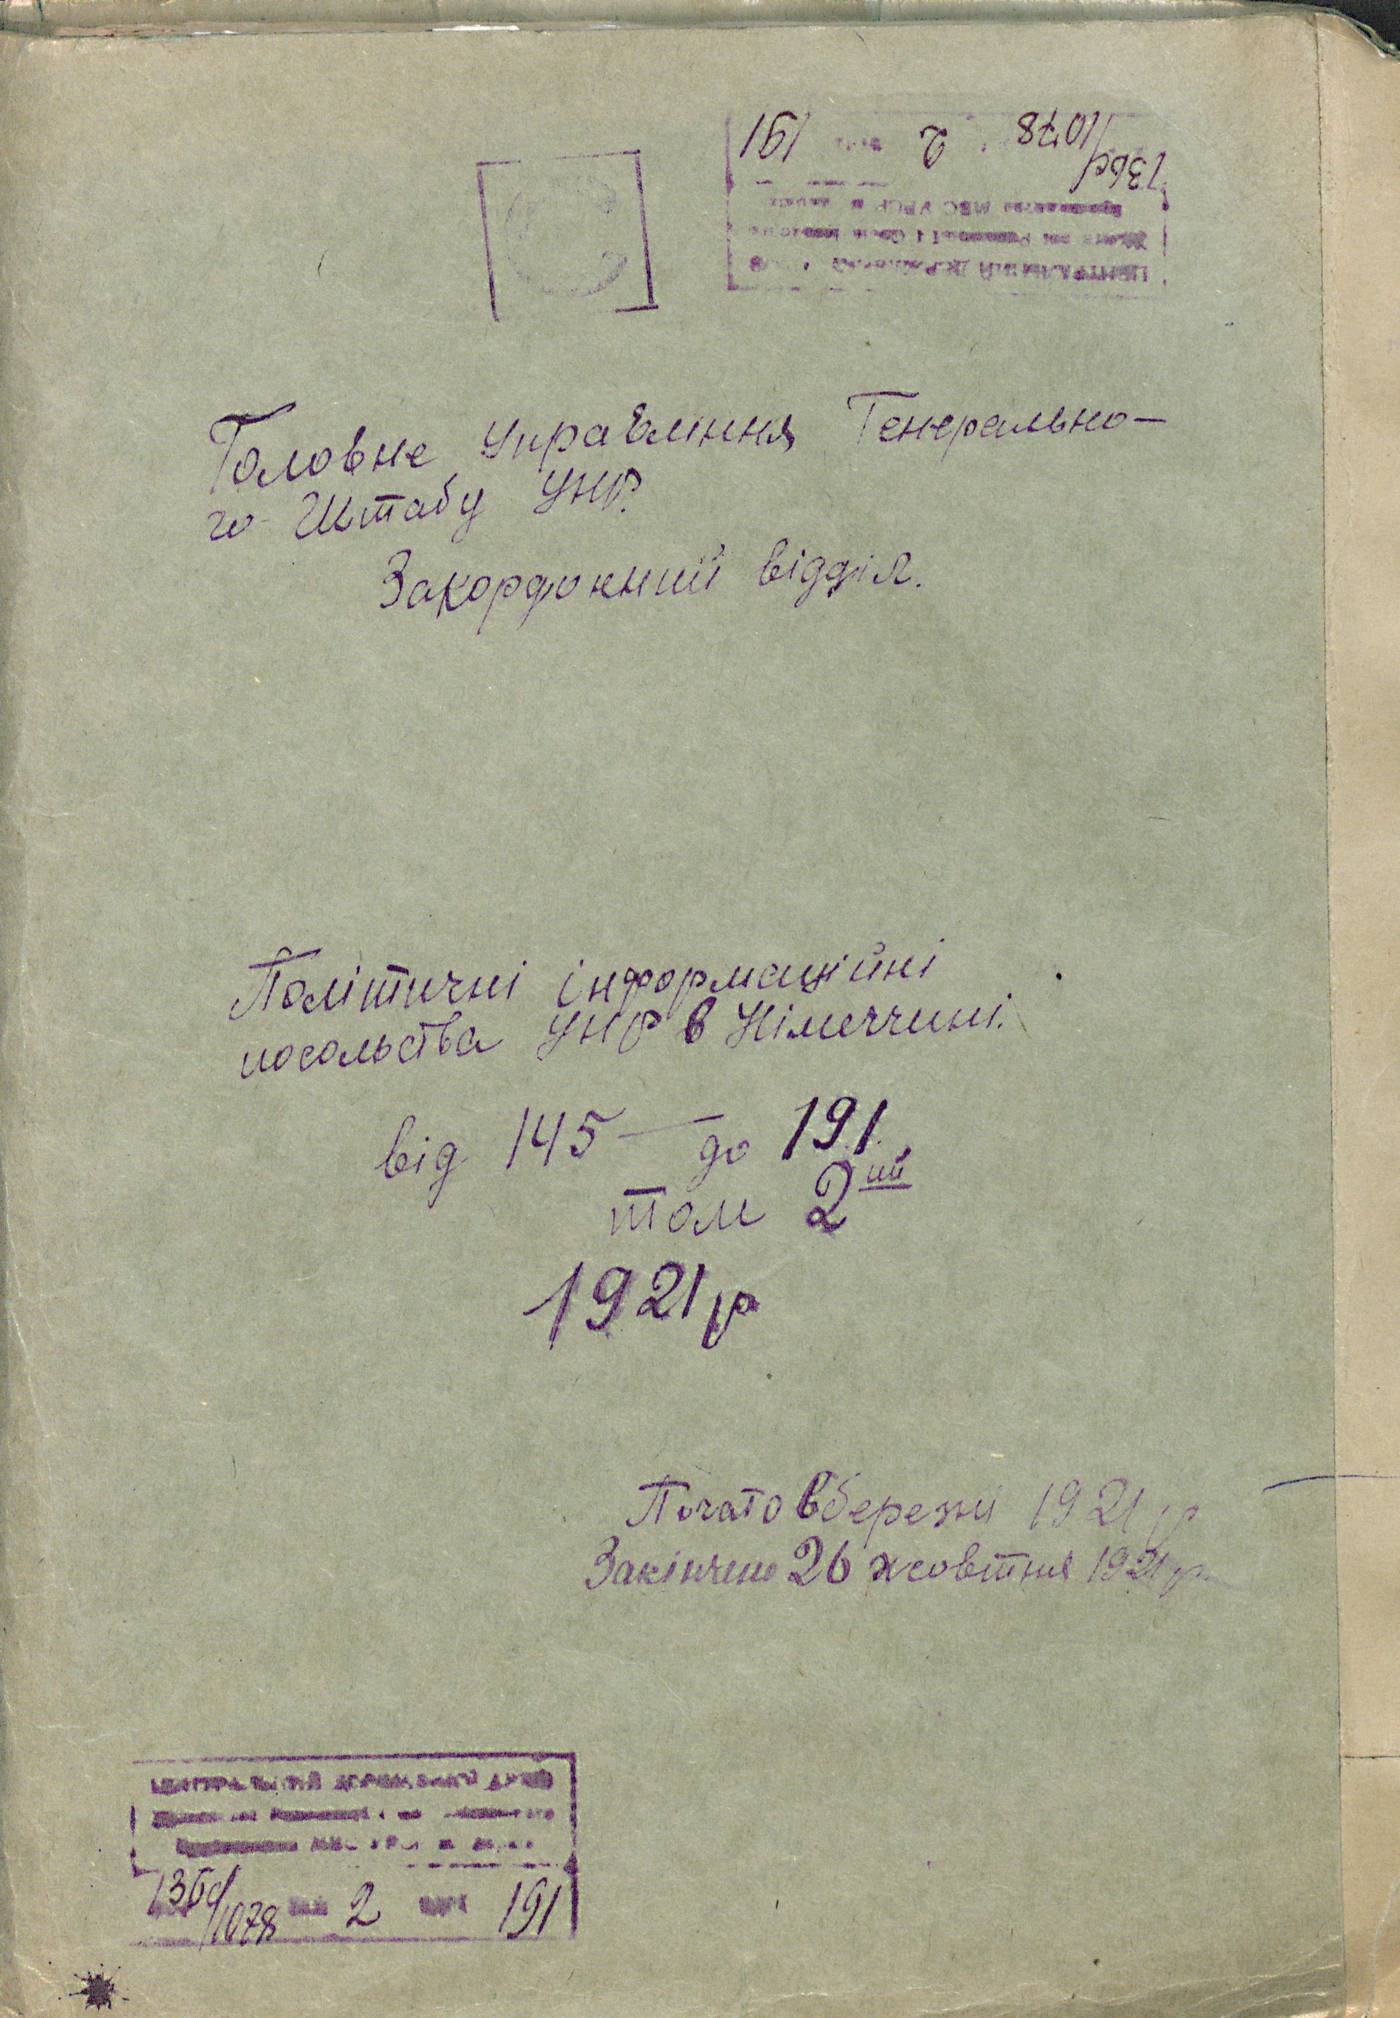 136с/1078 2 191
ЦЕНТРАЛЬНИЙ
МВС УРСР
Головне Управління Генерально-
го Штабу УНР.
Закордонний відділ.
Політичні інформаційні
посольства УНР в Німеччині.
від 145 — до 191.
том 2ий
1921 р
Почато в березні 1921 р
Закінчено 26 жовтня 1921 р.
ЦЕНТРАЛЬНИЙ ДЕРЖАВНИЙ АРХІВ
136с/1078 2 191